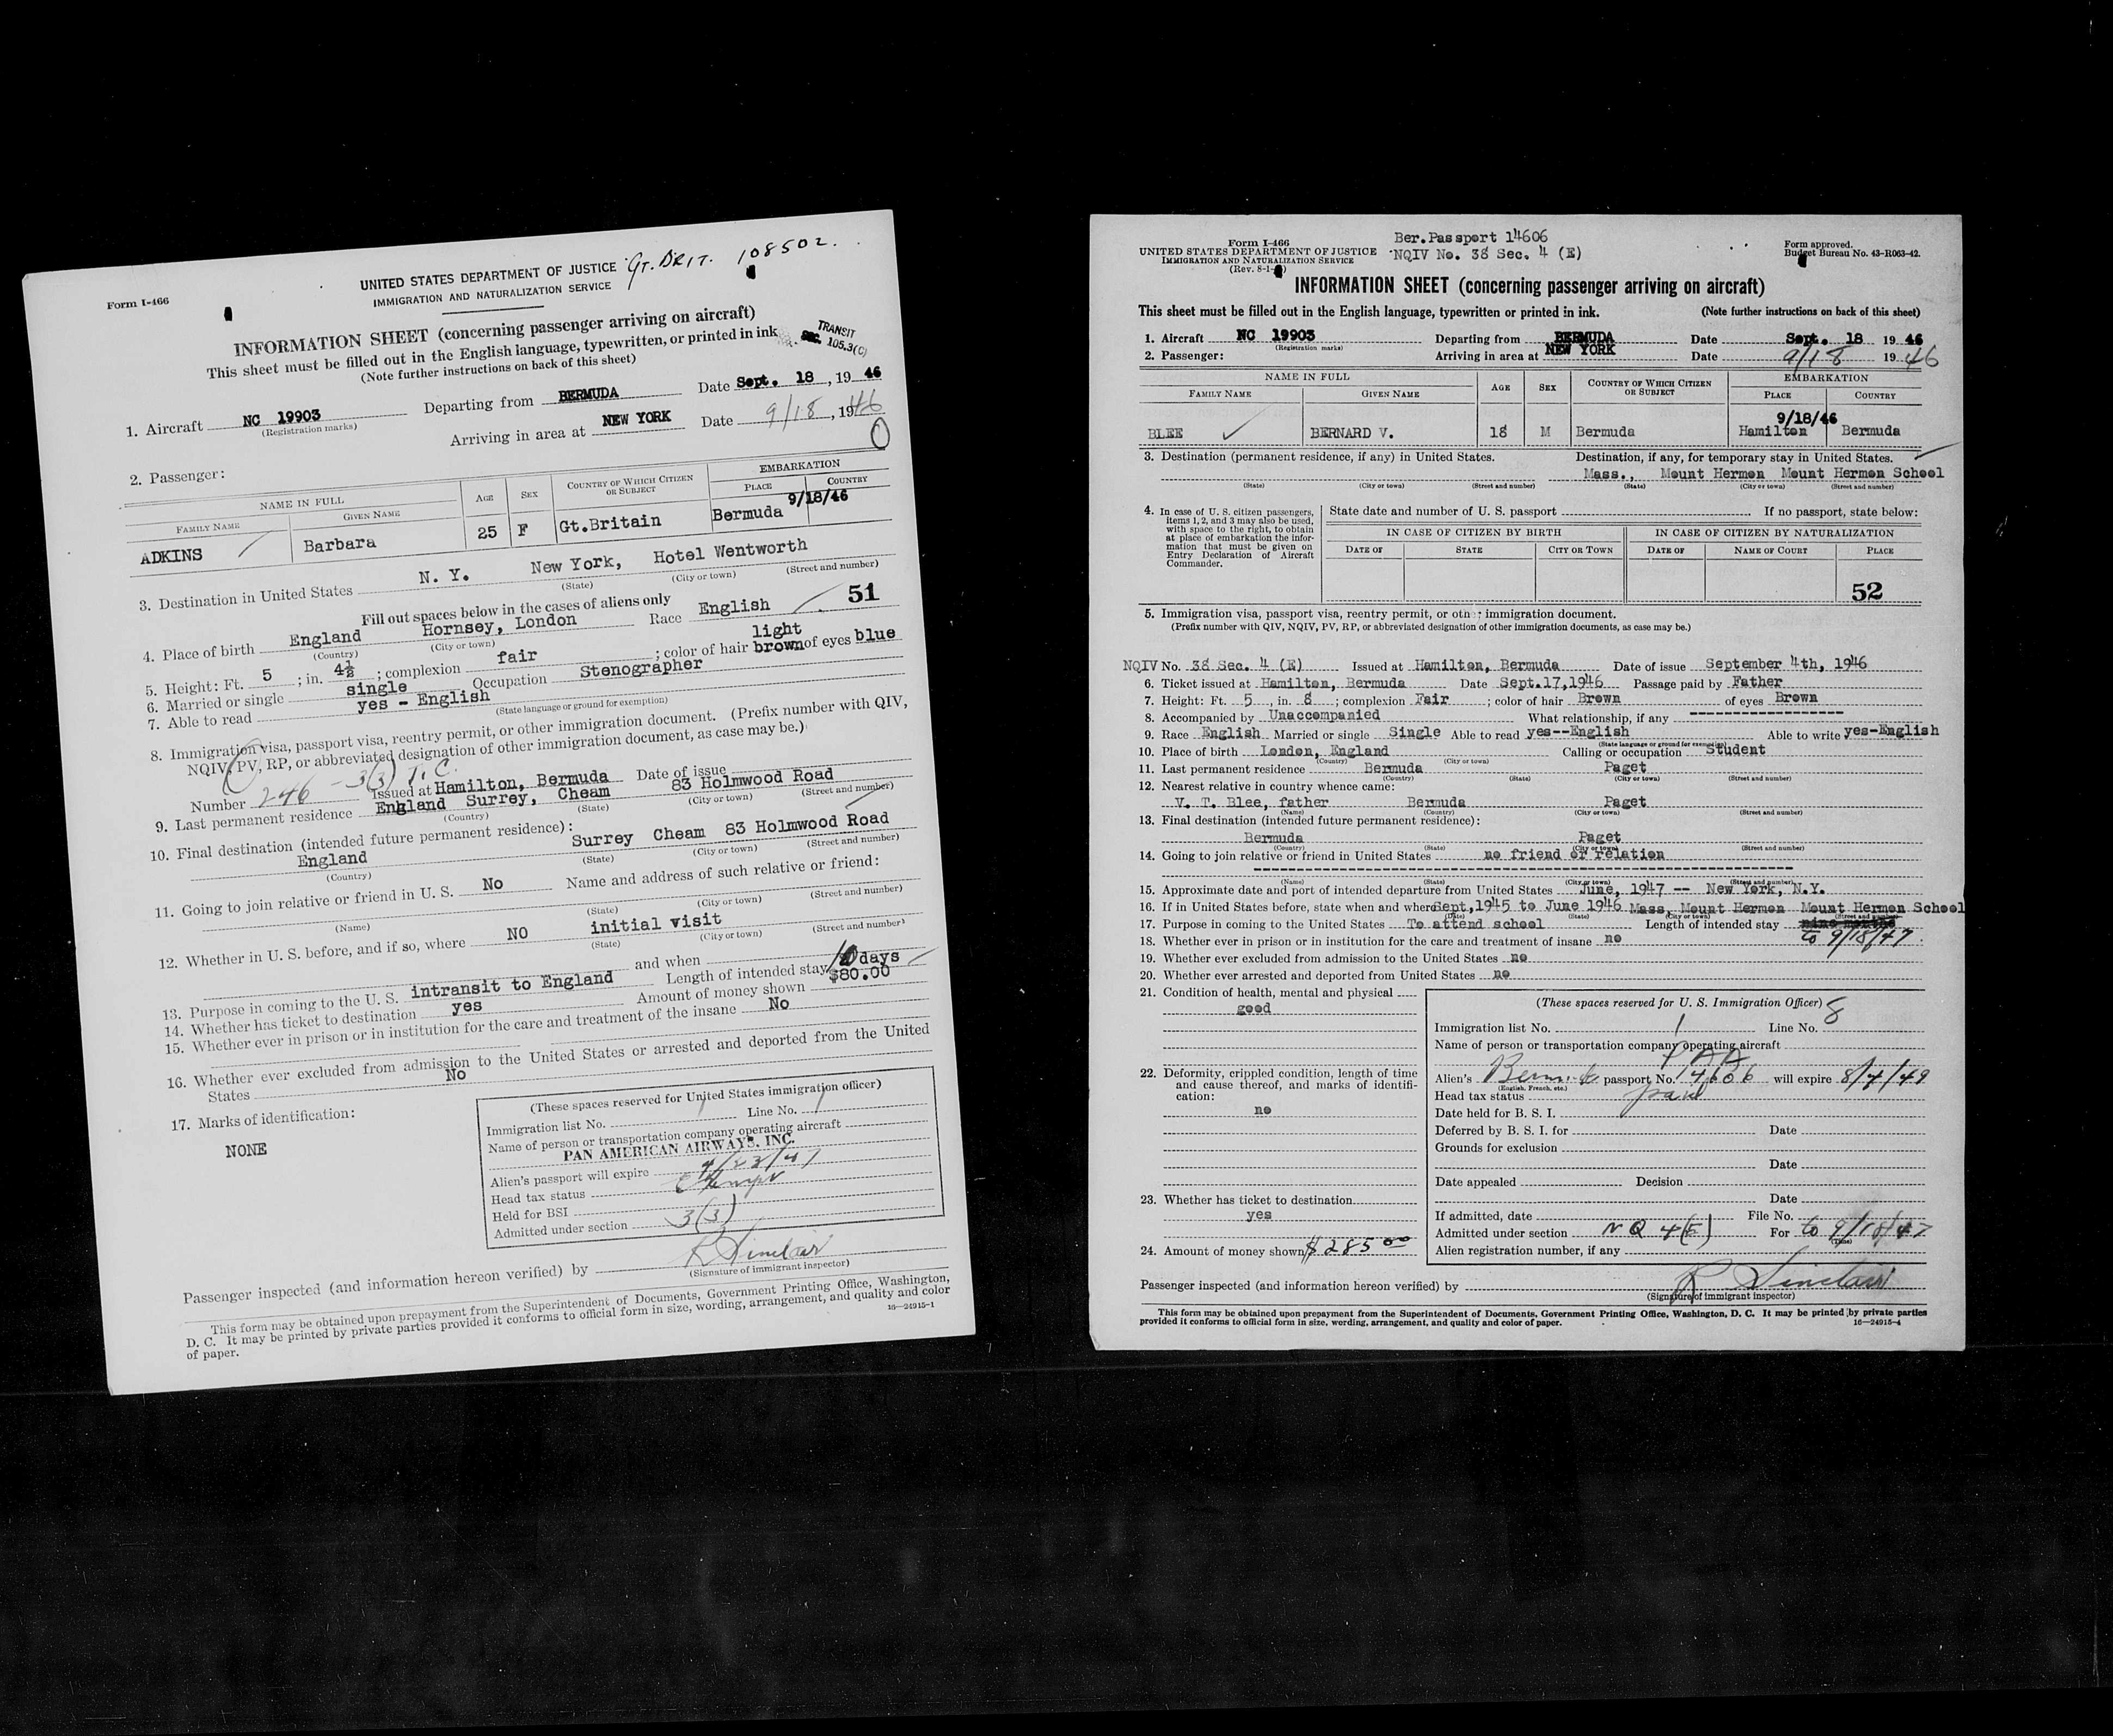 Form I-466
UNITED STATES DEPARTMENT OF JUSTICE GT. BRIT. 108502.
IMMIGRATION AND NATURALIZATION SERVICE
INFORMATION SHEET (concerning passenger arriving on aircraft)
This sheet must be filled out in the English language, typewritten, or printed in ink.
(Note further instructions on back of this sheet)
TRANSIT
SEC. 105.3(C)
1. Aircraft NC 19903 Departing from BERMUDA Date Sept. 18, 19 46
(Registration marks)
Arriving in area at NEW YORK Date 9/18, 1946
2. Passenger:
NAME IN FULL AGE SEX COUNTRY OF WHICH CITIZEN OR SUBJECT EMBARKATION
FAMILY NAME GIVEN NAME PLACE COUNTRY
9/18/46
ADKINS Barbara 25 F Gt.Britain Bermuda
3. Destination in United States N. Y. New York, Hotel Wentworth
(State) (City or town) (Street and number)
Fill out spaces below in the cases of aliens only
51
4. Place of birth England Hornsey, London Race English
(Country) (City or town)
5. Height: Ft. 5; in. 4½; complexion fair; color of hair light brown of eyes blue
6. Married or single single Occupation Stenographer
7. Able to read yes - English
(State language or ground for exemption)
8. Immigration visa, passport visa, reentry permit, or other immigration document. (Prefix number with QIV,
NQIV, PV, RP, or abbreviated designation of other immigration document, as case may be.)
Number 246 - 3(3) T.C. Issued at Hamilton, Bermuda Date of issue
9. Last permanent residence England Surrey, Cheam 83 Holmwood Road
(Country) (State) (City or town) (Street and number)
10. Final destination (intended future permanent residence):
England Surrey Cheam 83 Holmwood Road
(Country) (State) (City or town) (Street and number)
11. Going to join relative or friend in U. S. No Name and address of such relative or friend:
(Name) (State) (City or town) (Street and number)
12. Whether in U. S. before, and if so, where NO initial visit
(State) (City or town) (Street and number)
and when
13. Purpose in coming to the U. S. intransit to England Length of intended stay 10 days
14. Whether has ticket to destination yes Amount of money shown $80.00
15. Whether ever in prison or in institution for the care and treatment of the insane No
16. Whether ever excluded from admission to the United States or arrested and deported from the United
States No
17. Marks of identification:
NONE
(These spaces reserved for United States immigration officer)
Immigration list No. 1 Line No. 1
Name of person or transportation company operating aircraft
PAN AMERICAN AIRWAYS, INC.
Alien's passport will expire 4/23/47
Head tax status Exempt
Held for BSI
Admitted under section 3(3)
Passenger inspected (and information hereon verified) by R Sinclair
(Signature of immigrant inspector)
This form may be obtained upon prepayment from the Superintendent of Documents, Government Printing Office, Washington,
D. C. It may be printed by private parties provided it conforms to official form in size, wording, arrangement, and quality and color
of paper.
16—24915-1
Form I-466
UNITED STATES DEPARTMENT OF JUSTICE
IMMIGRATION AND NATURALIZATION SERVICE
(Rev. 8-1- )
Ber.Passport 14606
NQIV No. 38 Sec. 4 (E)
Form approved.
Budget Bureau No. 43-R063-42.
INFORMATION SHEET (concerning passenger arriving on aircraft)
This sheet must be filled out in the English language, typewritten or printed in ink. (Note further instructions on back of this sheet)
1. Aircraft NC 19903 Departing from BERMUDA Date Sept. 18 19 46
(Registration marks)
2. Passenger: Arriving in area at NEW YORK Date 9/18 1946
NAME IN FULL AGE SEX COUNTRY OF WHICH CITIZEN OR SUBJECT EMBARKATION
FAMILY NAME GIVEN NAME PLACE COUNTRY
9/18/46
BLEE BERNARD V. 18 M Bermuda Hamilton Bermuda
3. Destination (permanent residence, if any) in United States. Destination, if any, for temporary stay in United States.
Mass., Mount Hermon Mount Hermon School
(State) (City or town) (Street and number) (State) (City or town) (Street and number)
4. In case of U. S. citizen passengers, items 1, 2, and 3 may also be used, with space to the right, to obtain at place of embarkation the information that must be given on Entry Declaration of Aircraft Commander.
State date and number of U. S. passport If no passport, state below:
IN CASE OF CITIZEN BY BIRTH IN CASE OF CITIZEN BY NATURALIZATION
DATE OF STATE CITY OR TOWN DATE OF NAME OF COURT PLACE
52
5. Immigration visa, passport visa, reentry permit, or other immigration document.
(Prefix number with QIV, NQIV, PV, RP, or abbreviated designation of other immigration documents, as case may be.)
NQIV No. 38 Sec. 4 (E) Issued at Hamilton, Bermuda Date of issue September 4th, 1946
6. Ticket issued at Hamilton, Bermuda Date Sept.17,1946 Passage paid by Father
7. Height: Ft. 5, in. 8; complexion Fair; color of hair Brown of eyes Brown
8. Accompanied by Unaccompanied What relationship, if any
9. Race English Married or single Single Able to read yes--English Able to write yes-English
(State language or ground for exemption)
10. Place of birth London, England Calling or occupation Student
(Country) (City or town)
11. Last permanent residence Bermuda Paget
(Country) (State) (City or town) (Street and number)
12. Nearest relative in country whence came:
V. T. Blee, father Bermuda Paget
(Name) (Country) (City or town) (Street and number)
13. Final destination (intended future permanent residence):
Bermuda Paget
(Country) (State) (City or town) (Street and number)
14. Going to join relative or friend in United States no friend or relation
(Name) (State) (City or town) (Street and number)
15. Approximate date and port of intended departure from United States June, 1947 -- New York, N.Y.
16. If in United States before, state when and where Sept,1945 to June 1946 Mass, Mount Hermon Mount Hermon School
(Date) (State) (City or town) (Street and number)
17. Purpose in coming to the United States To attend school Length of intended stay nine months
to 9/18/47.
18. Whether ever in prison or in institution for the care and treatment of insane no
19. Whether ever excluded from admission to the United States no
20. Whether ever arrested and deported from United States no
21. Condition of health, mental and physical
good
22. Deformity, crippled condition, length of time and cause thereof, and marks of identification:
no
23. Whether has ticket to destination
yes
24. Amount of money shown $285 00
(These spaces reserved for U. S. Immigration Officer)
Immigration list No. 1 Line No. 8
Name of person or transportation company operating aircraft
PAA
Alien's Bermuda passport No. 14606 will expire 8/4/49
(English, French, etc.)
Head tax status paid
Date held for B. S. I.
Deferred by B. S. I. for Date
Grounds for exclusion
Date
Date appealed Decision
Date
If admitted, date File No.
Admitted under section NQ 4(E) For to 9/18/47
(Time)
Alien registration number, if any
Passenger inspected (and information hereon verified) by R Sinclair
(Signature of immigrant inspector)
This form may be obtained upon prepayment from the Superintendent of Documents, Government Printing Office, Washington, D. C. It may be printed by private parties
provided it conforms to official form in size, wording, arrangement, and quality and color of paper.
16—24915-4